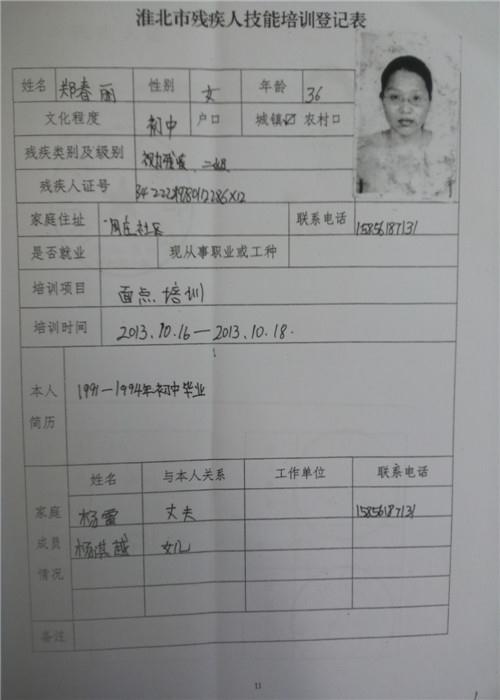 淮北市残疾人技能培训登记表
姓名 郑春丽 性别 女 年龄 36
文化程度 初中 户口 城镇☑ 农村口
残疾类别及级别 视力残疾、二级
残疾人证号
家庭住址 周庄社区 联系电话 15856187131
是否就业 现从事职业或工种
培训项目 面点培训
培训时间 2013.10.16—2013.10.18.
本人简历 1991—1994年初中毕业
家庭成员情况 姓名 与本人关系 工作单位 联系电话
杨雷 丈夫 15856187131
杨淇越 女儿
备注
11